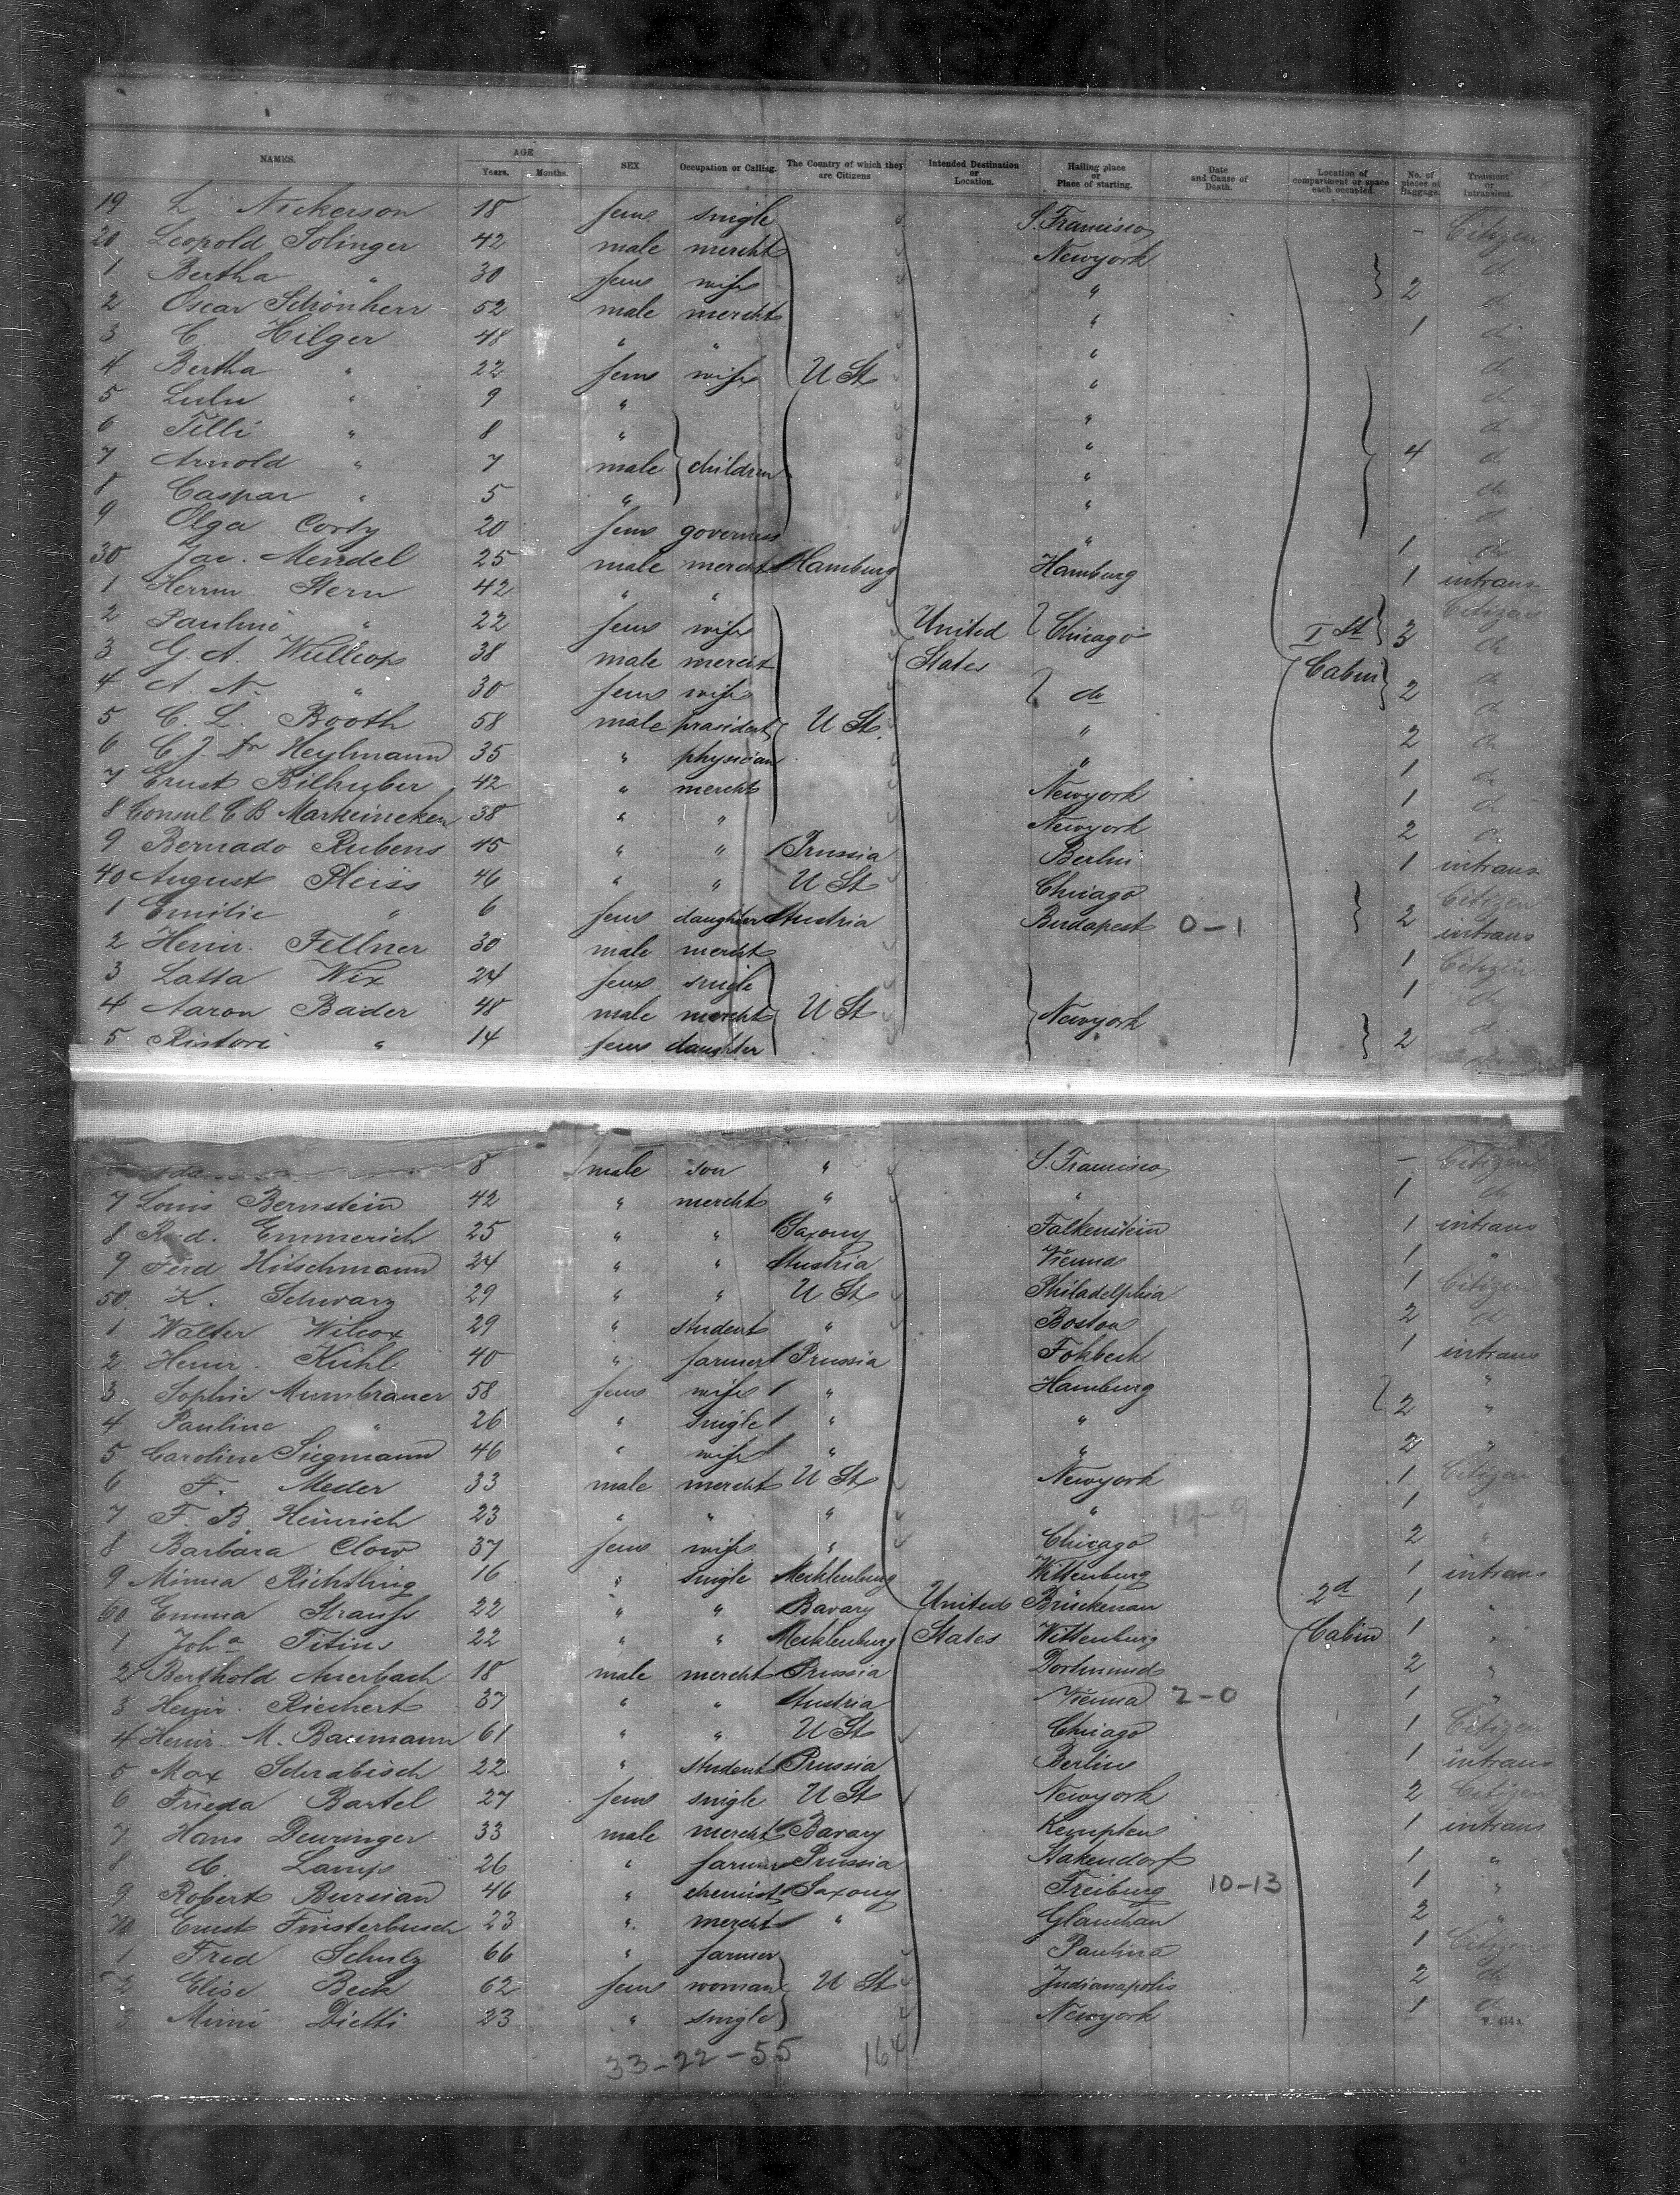 NAMES. AGE Years. Months. SEX Occupation or Calling. The Country of which they are Citizens Intended Destination or Location. Hailing place or Place of starting. Date and Cause of Death. Location of compartment or space each occupied. No. of pieces of Baggage. Transient or Intransient.
19 L Nickerson 18 fem single S. Francisco - Citizen
20 Leopold Solinger 42 male mercht Newyork do
1 Bertha " 30 fem wife " 2 do
2 Oscar Schönherr 52 male mercht " 1 do
3 C Hilger 48 " " " do
4 Bertha " 22 fem wife U St " do
5 Lulu " 9 " " do
6 Tilli " 8 " " 4 do
7 Arnold " 7 male children " do
8 Caspar " 5 " " do
9 Olga Corty 20 fem governess " 1 do
30 Jac. Mendel 25 male mercht Hamburg Hamburg 1 intrans
1 Herm. Stern 42 " " Citizen
2 Pauline " 22 fem wife United Chicago I St 3 do
3 G. A. Wullcop 38 male mercht States Cabin do
4 A. N. " 30 fem wife do 2 do
5 C. L. Booth 58 male president U St. " 2 do
6 C. J. Dr Heylmann 35 " physician " 1 do
7 Ernst Bilhuber 42 " mercht Newyork 1 do
8 Consul C B Markeincken 38 " " Newyork 2 do
9 Bernado Rubens 45 " " Prussia Berlin 1 intrans
40 August Pleiss 46 " " U St Chicago Citizen
1 Emilie " 6 fem daughter Austria Budapest 0-1 2 intrans
2 Heinr. Fellner 30 male mercht 1 Citizen
3 Latta Wix 24 fem single 1 do
4 Aaron Bader 48 male mercht U St Newyork do
5 Ristori " 14 fem daughter " 2 do
8 male son " S. Francisco - Citizen
7 Louis Bernstein 42 " mercht " " 1 do
8 Rud. Emmerich 25 " " Saxony Falkenstein 1 intrans
9 Ferd Hitschmann 24 " " Austria Vienna 1 "
50 K. Schwarz 29 " " U St Philadelphia 1 Citizen
1 Walter Wilcox 29 " student " Boston 2 do
2 Heinr. Kühl 40 " farmer Prussia Fokbeck 1 intrans
3 Sophie Mumbrauer 58 fem wife " Hamburg 2 "
4 Pauline " 26 " single " " "
5 Caroline Siegmann 46 " wife " " 2 "
6 F. Meder 33 male mercht U St Newyork 1 Citizen
7 F. B. Heinrich 23 " " " " 19-9 1 "
8 Barbara Clow 37 fem wife " Chicago 2 "
9 Minna Richtling 16 " single Mecklenburg Wittenburg 1 intrans
60 Emma Strauß 22 " " Bavary United Brückenau 2d 1 "
1 Joha Titius 22 " " Mecklenburg States Wittenburg Cabin 1 "
2 Berthold Auerbach 18 male mercht Prussia Dortmund 2 "
3 Heinr. Riechert 37 " " Austria Vienna 2-0 1 "
4 Heinr. M. Baumann 61 " " U St Chicago 1 Citizen
5 Max Schrabisch 22 " student Prussia Berlin 1 intrans
6 Frieda Bartel 27 fem single U St Newyork 2 Citizen
7 Hans Deuringer 33 male mercht Bavary Kempten 1 intrans
8 C. Lamp 26 " farmer Prussia Stakendorf 1 "
9 Robert Bursian 46 " chemist Saxony Freiburg 10-13 1 "
70 Ernst Finsterbusch 23 " mercht " Glauchau 2 "
1 Fred Schulz 66 " farmer Paulina 1 Citizen
2 Elise Beck 62 fem woman U St Indianapolis 2 do
3 Mimi Dietti 23 " single Newyork 1 do
33-22-55 164